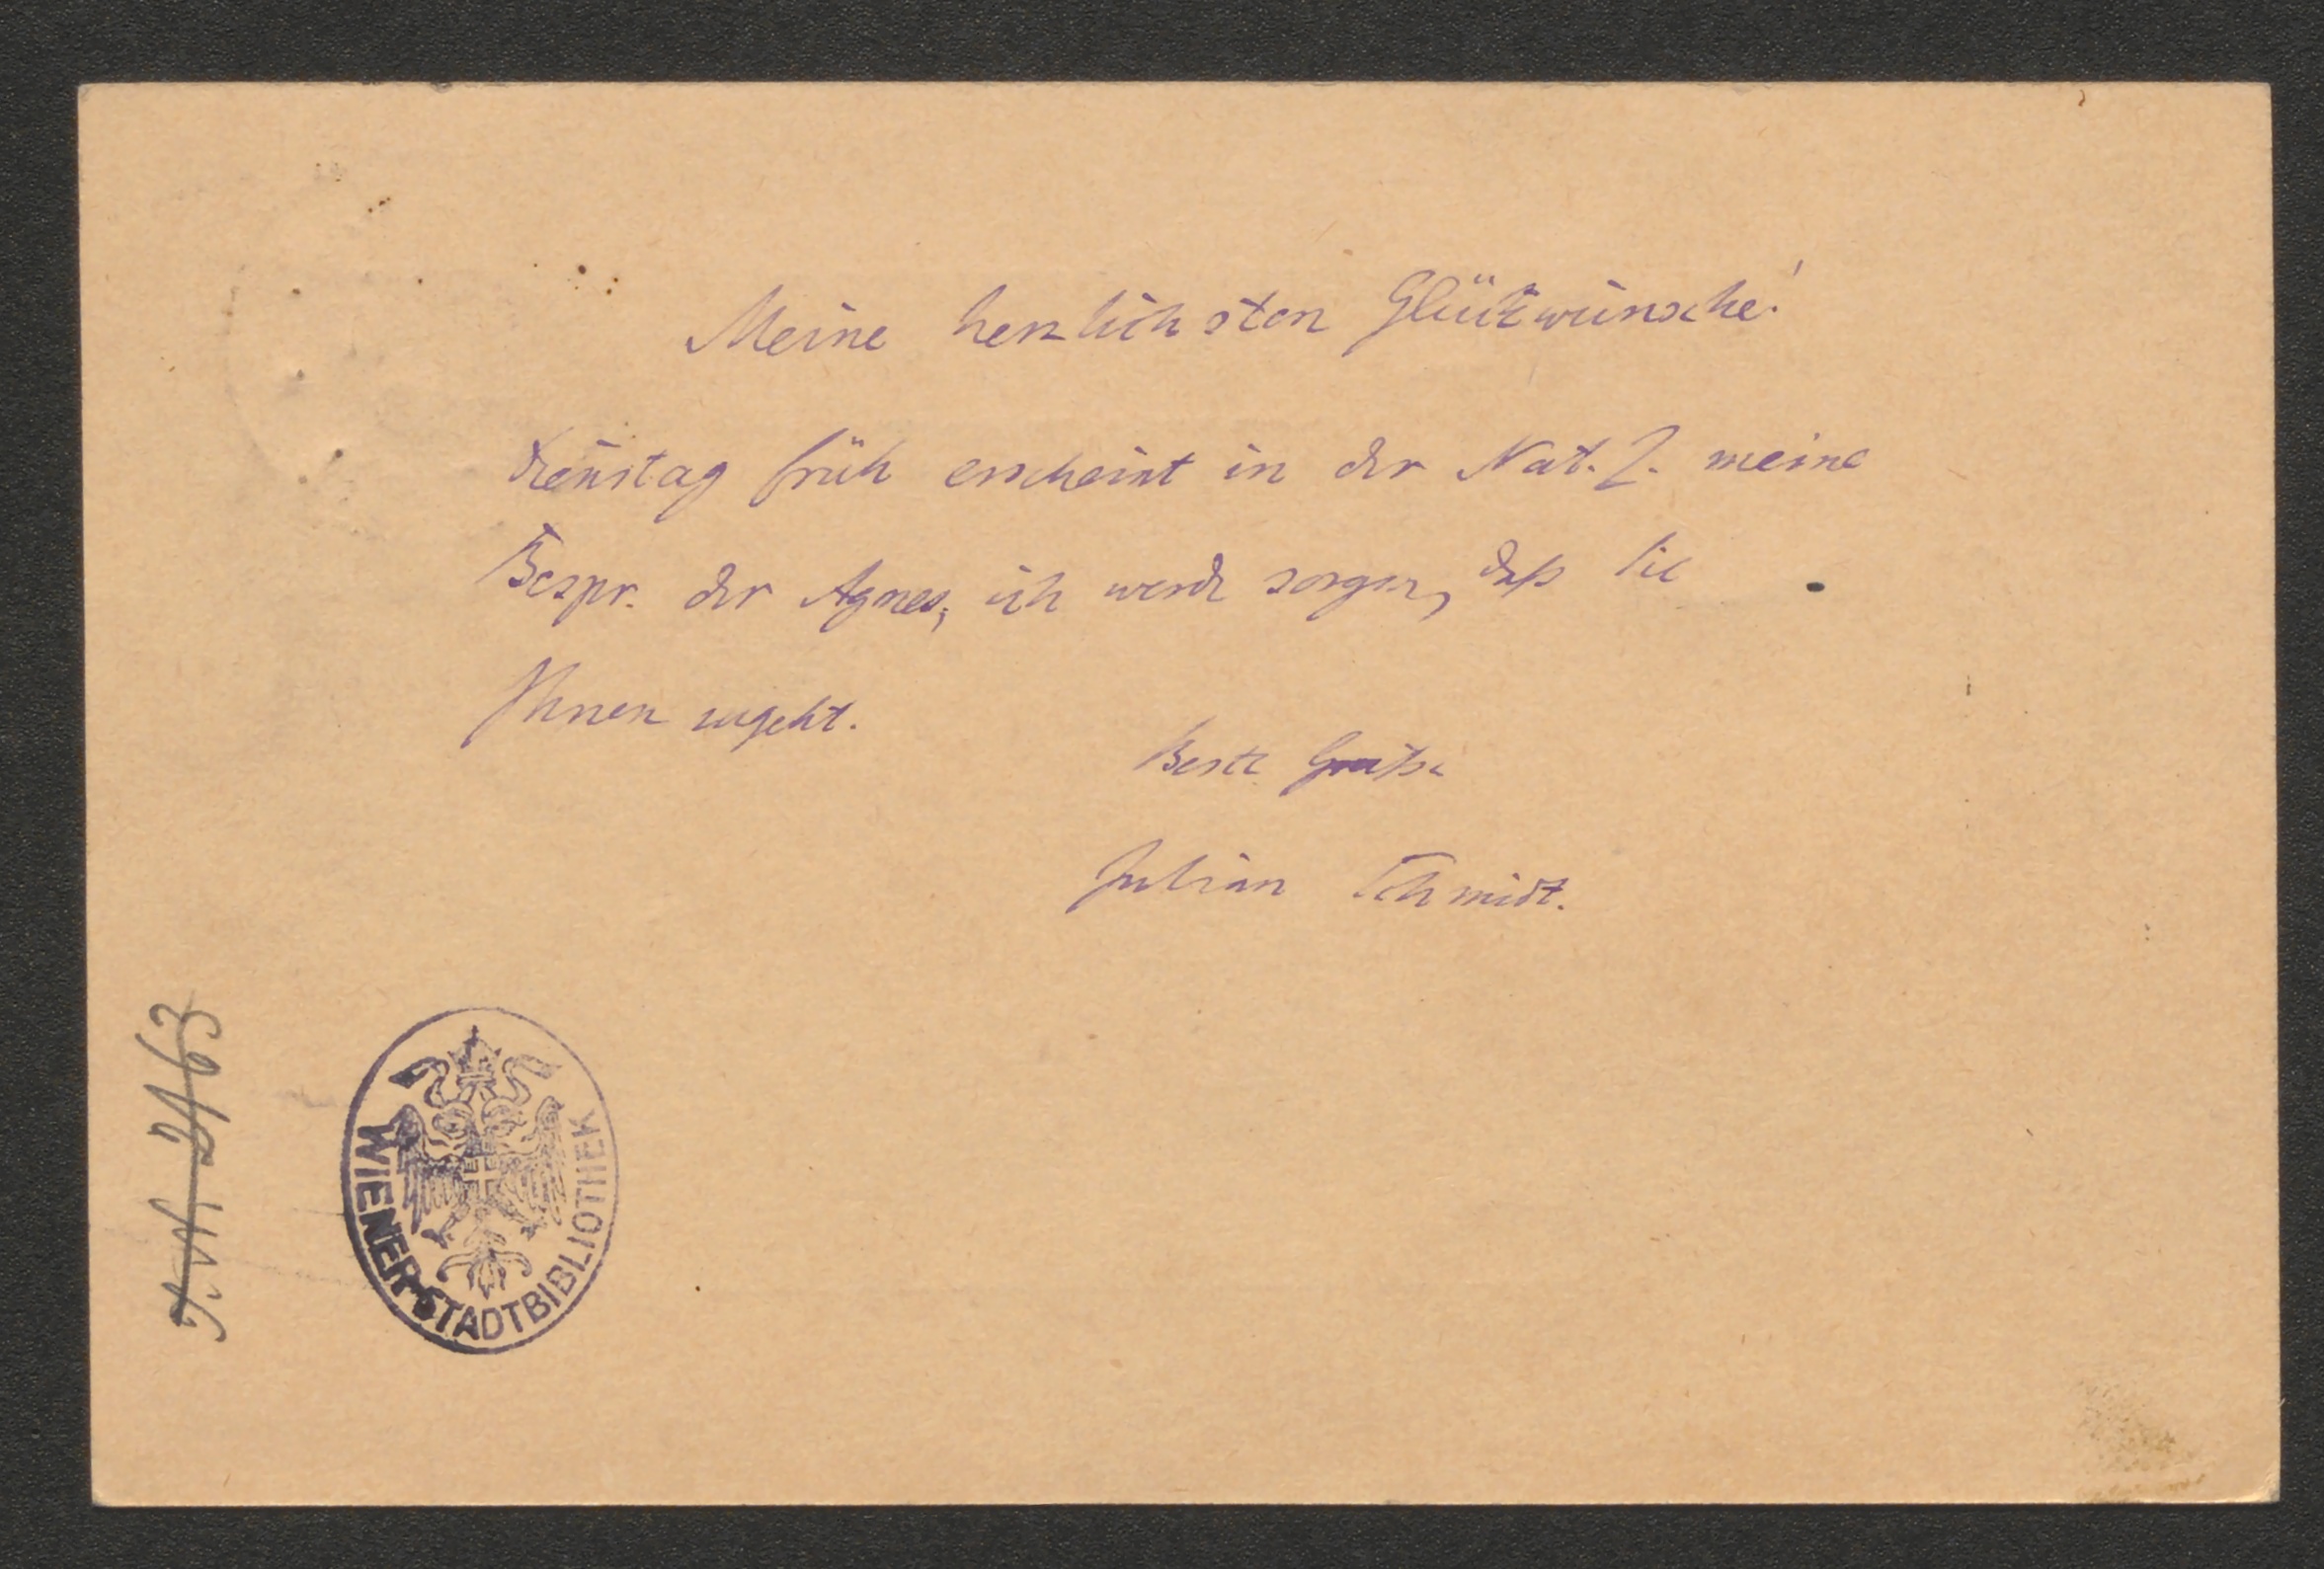 Meine herzlichsten Glückwünsche!
Dienstag früh erscheint in der Nat. Z. meine
Bespr. der Agnes; ich werde sorgen, daß sie
Ihnen zugeht.
Beste Grüße
Julian Schmidt.
WIENER STADTBIBLIOTHEK